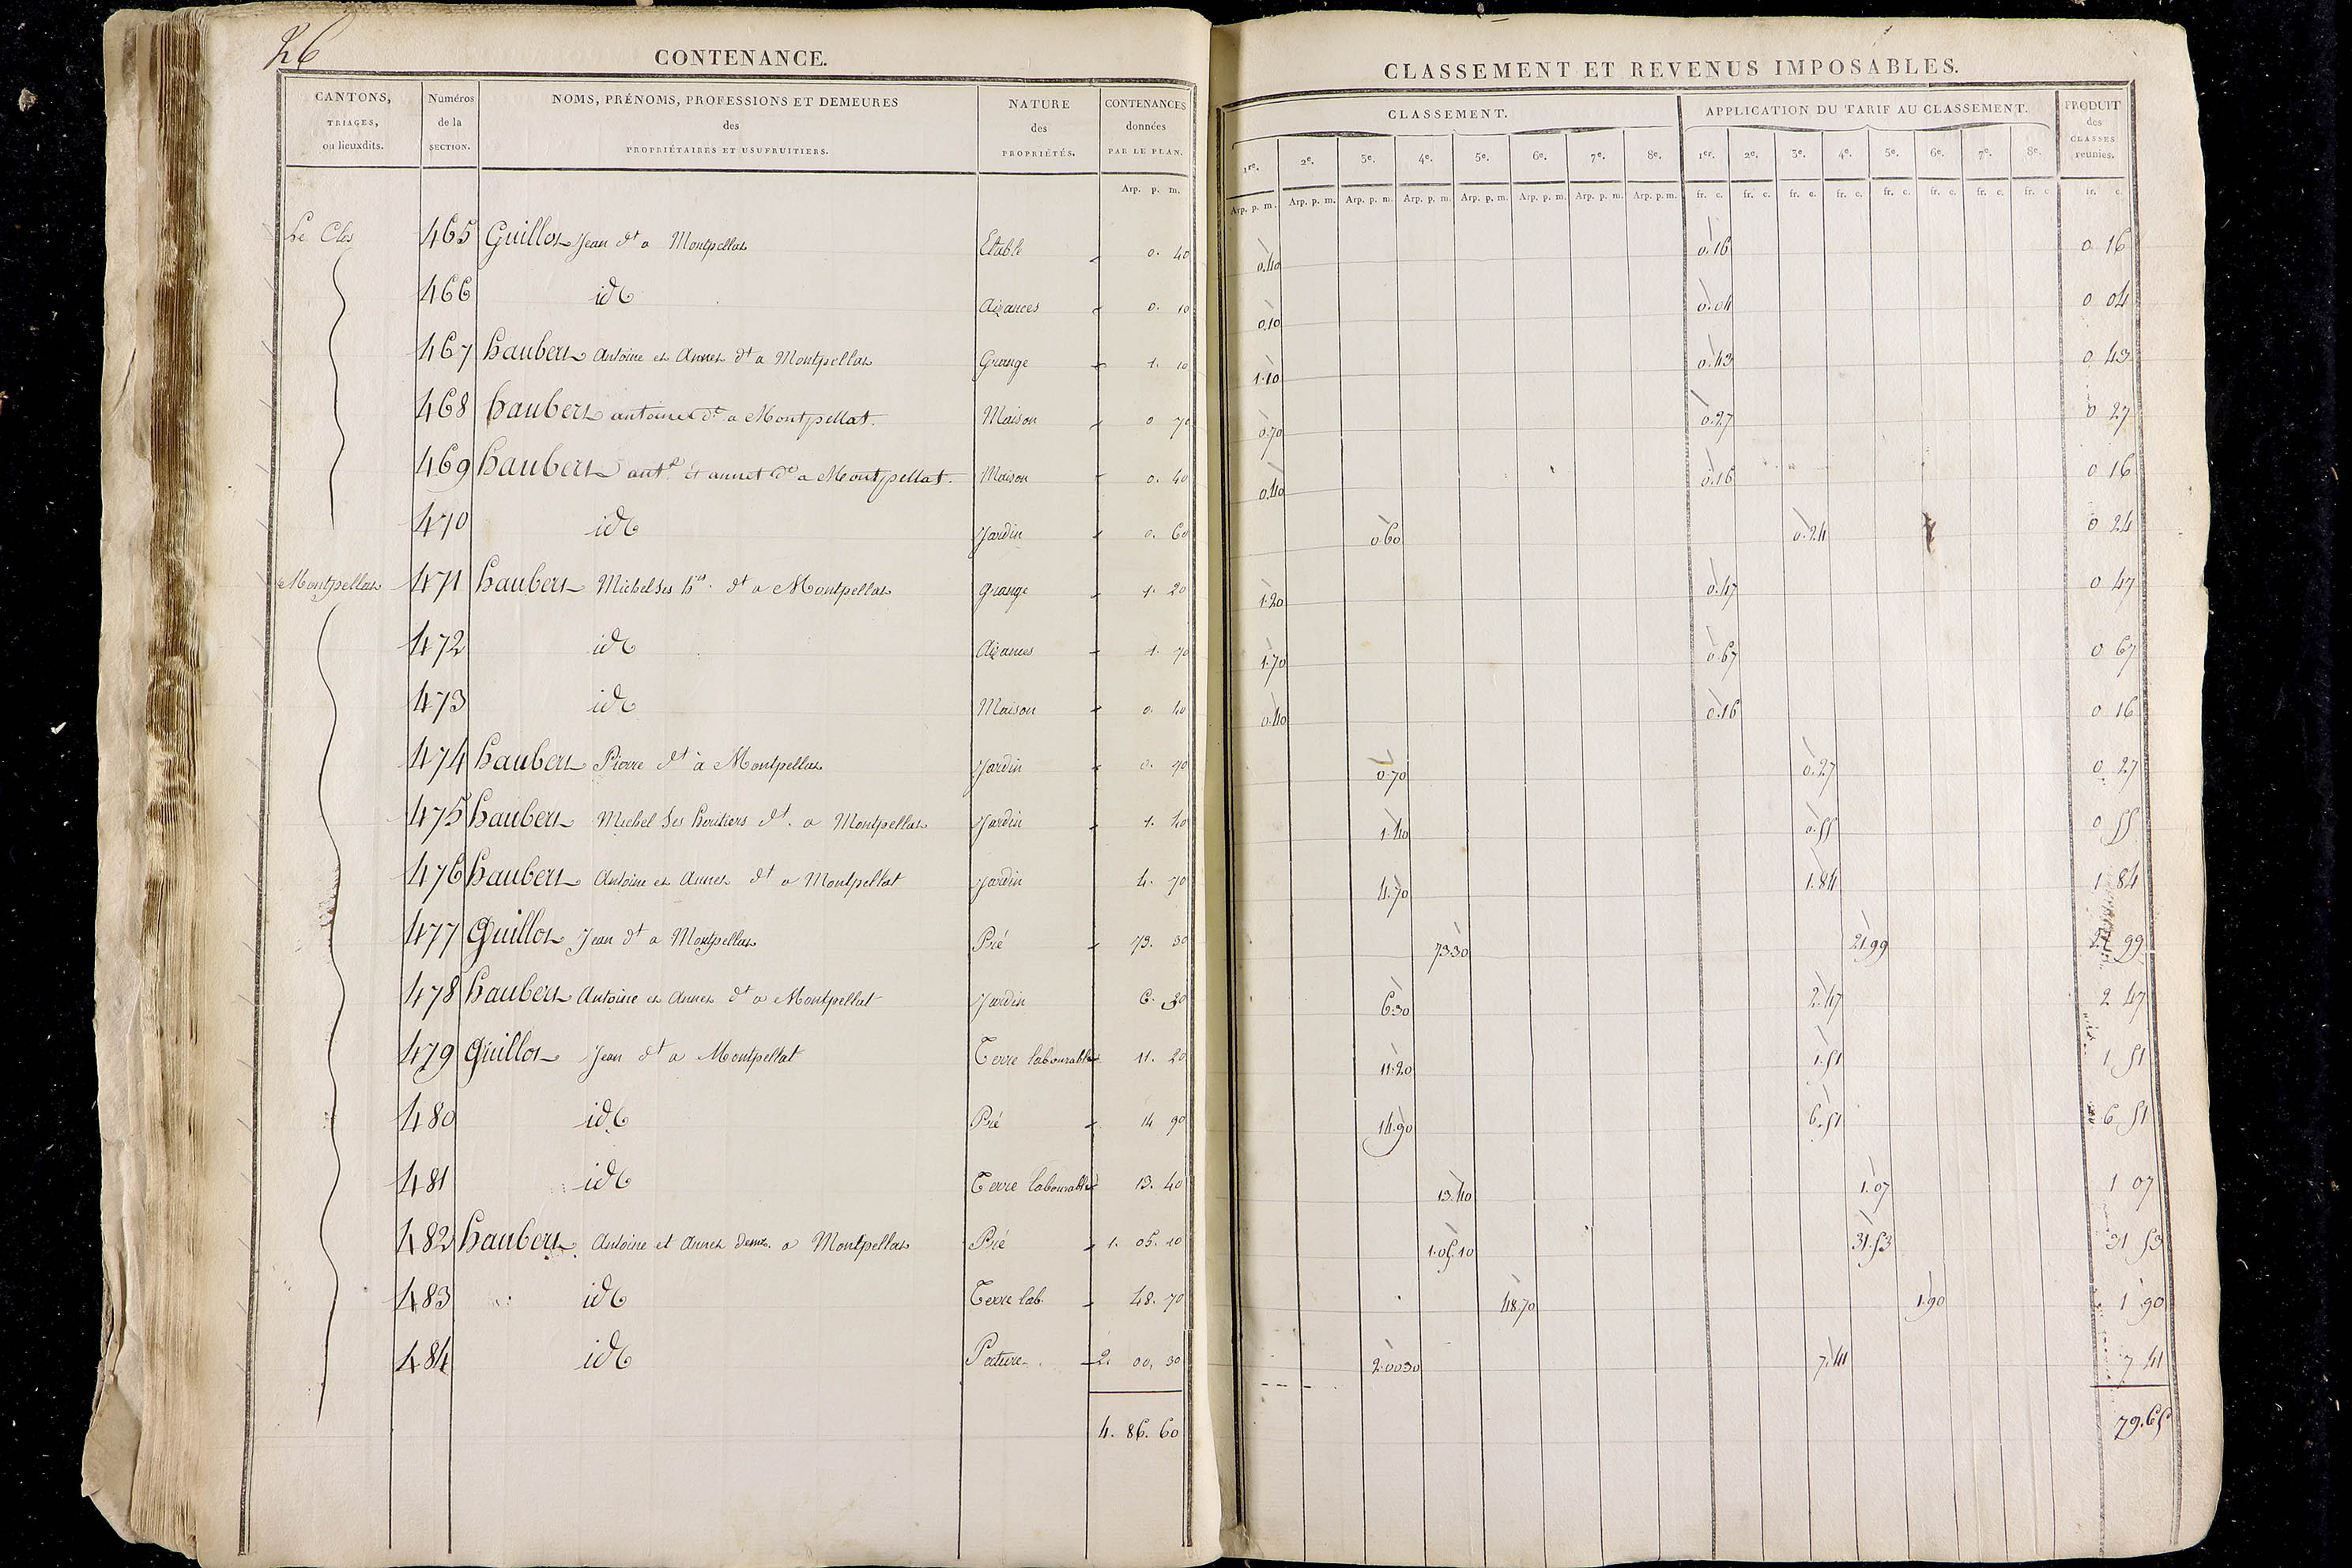 26
CONTENANCE.
CANTONS, TRIAGES, ou lieuxdits. | Numéros de la SECTION. | NOMS, PRÉNOMS, PROFESSIONS ET DEMEURES des PROPRIÉTAIRES ET USUFRUITIERS. | NATURE des PROPRIÉTÉS. | CONTENANCES données PAR LE PLAN.
Arp. p. m.
Le Clos 465 Guillot Jean dt a Montpellat Etable 0. 40
466 id Aizances 0. 10
467 haubert Antoine et Annet dt a Montpellat Grange 1. 10
468 haubert antoine dt a Montpellat. Maison 0 70
469 haubert antne et annet dt a Montpellat. Maison 0. 40
470 id Jardin 0. 60
Montpellat 471 haubert Michel ses hers. dt a Montpellat grange 1. 20
472 id Aizances 1. 70
473 id Maison 0. 40
474 haubert Pierre dt à Montpellat Jardin 0. 70
475 haubert Michel Ses heritiers dt. a Montpellat Jardin 1. 40
476 haubert Antoine et Annet dt a Montpellat Jardin 4. 70
477 Guillot Jean dt a Montpellat Pré 73. 30
478 haubert Antoine et Annet dt a Montpellat Jardin 6. 30
479 Guillot Jean dt a Montpellat Terre labourable 11. 20
480 id Pré 14 90
481 id Terre labourable 13. 40
482 haubert Antoine et Annet demt. a Montpellat Pré 1. 05. 10
483 id Terre lab. 48. 70
484 id Pature 2. 00. 30
4. 86. 60
CLASSEMENT ET REVENUS IMPOSABLES.
CLASSEMENT. | APPLICATION DU TARIF AU CLASSEMENT. | PRODUIT des CLASSES reunies.
1re. 2e. 3e. 4e. 5e. 6e. 7e. 8e. 1er. 2e. 3e. 4e. 5e. 6e. 7e. 8e.
Arp. p. m. Arp. p. m. Arp. p. m. Arp. p. m. Arp. p. m. Arp. p. m. Arp. p. m. Arp. p. m. fr. c. fr. c. fr. c. fr. c. fr. c. fr. c. fr. c. fr. c fr. c.
0.40 0.16 0 16
0.10 0.04 0 04
1.10 0.43 0 43
0.70 0.27 0 27
0.40 0.16 0 16
0.60 0.24 0 24
1.20 0.47 0 47
1.70 0.67 0 67
0.40 0.16 0 16
0.70 0.27 0. 27
1.40 0.55 0 55
4.70 1.84 1 84
73.30 21.99 21 99
6.30 2.47 2 47
11.20 1.51 1 51
14.90 6.51 6 51
13.40 1.07 1 07
1.05.10 31.53 31 53
48.70 1.90 1 90
2.00.30 7.41 7 41
79.65